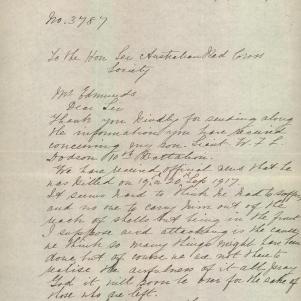 No. 3787
To the Hon Sec Australian Red Cross
Society
Mr Edmunds
Dear Sir
Thank you kindly for sending along
the information you have
concerning my son. Lieut W. F. L
Dodson 10th Battalion.
We have received official news that he
was killed on 20 Sep 1917
It seems hard to think he had to suffer
and no one to carry him out of the
reach of shells but being in the front
I suppose and attacking is the cause
we think so many things might have been
done, but of course we are not there to
realise the awfulness of it all, pray
God it will soon be over for the sake of
those who are left.